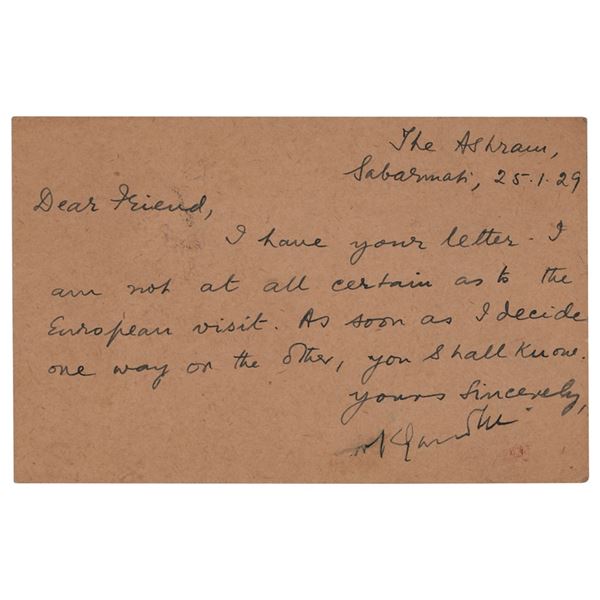 The Ashram,
Sabarmati, 25.1.29
Dear Friend,
I have your letter. I
am not at all certain as to the
European visit. As soon as I decide
one way or the other, you shall know.
yours sincerely,
MKGandhi